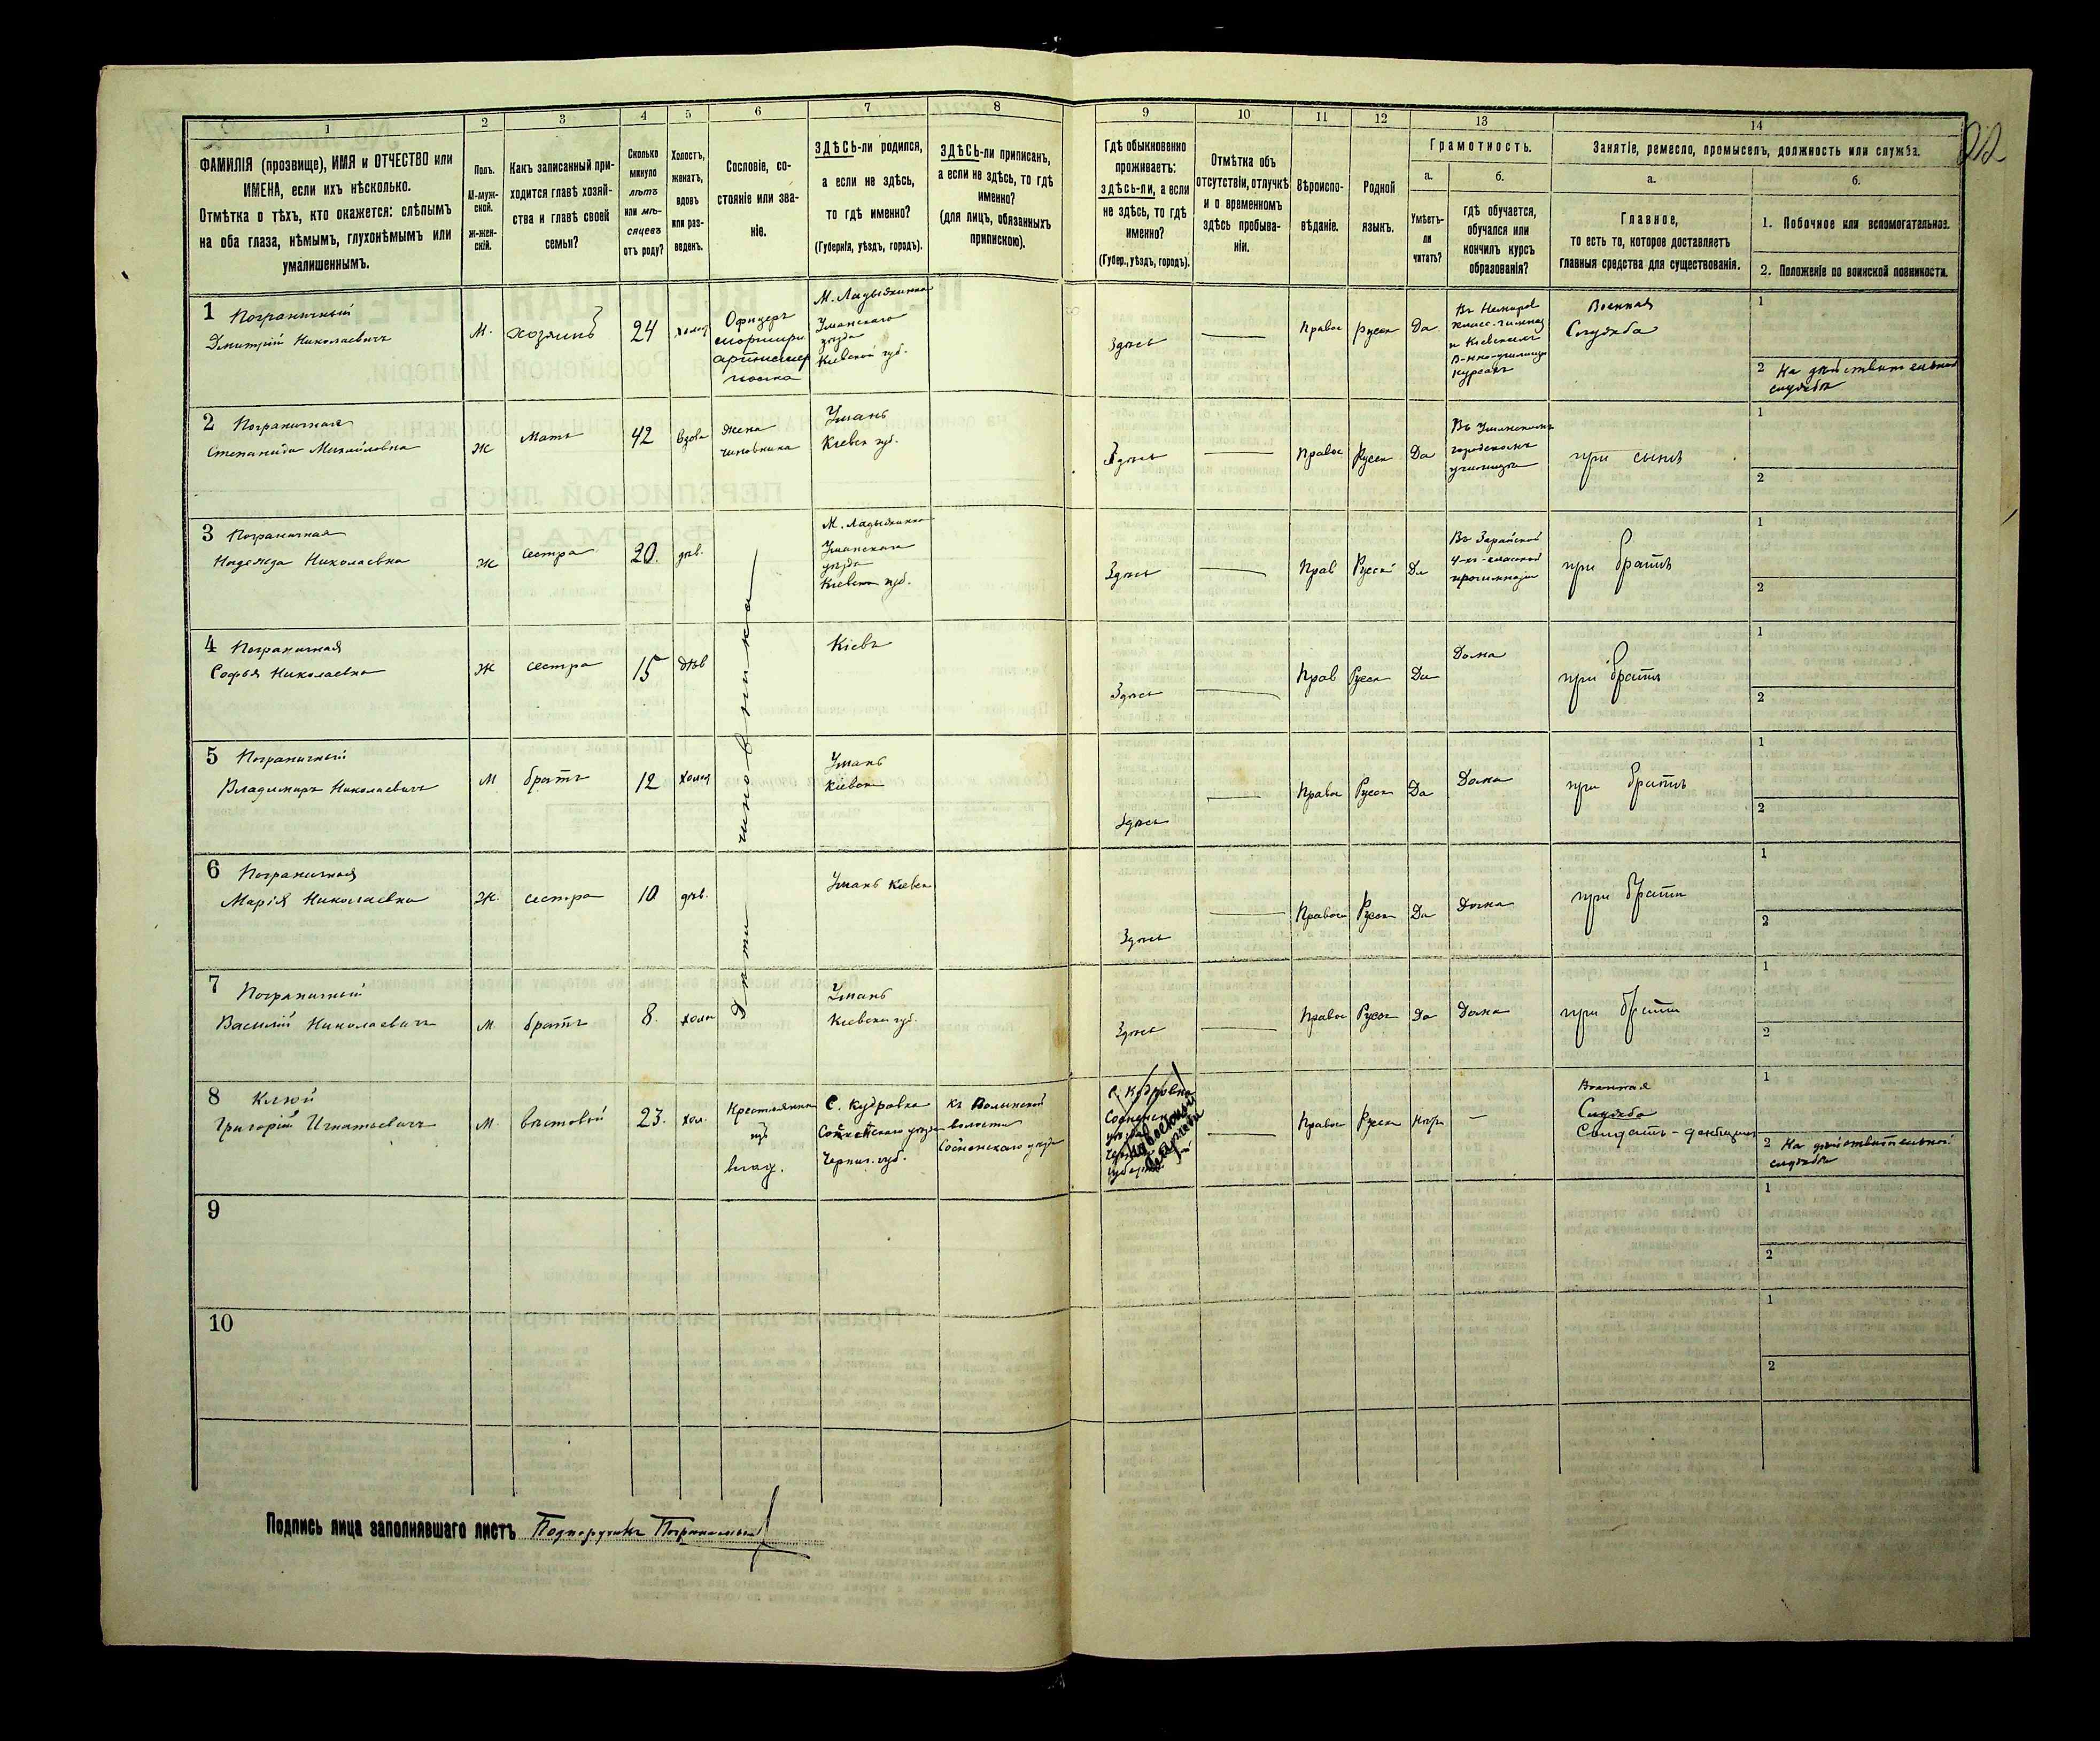 1
2
3
4
5
6
7
8
9
10
11
12
13
14
22
ФАМИЛІЯ (прозвище), ИМЯ и ОТЧЕСТВО или
ИМЕНА, если ихъ нѣсколько.
Отмѣтка о тѣхъ, кто окажется: слѣпымъ
на оба глаза, нѣмымъ, глухонѣмымъ или
умалишеннымъ.
Полъ.
М-муж-
ской.
Ж-жен-
скій.
Какъ записанный при-
ходится главѣ хозяй-
ства и главѣ своей
семьи?
Сколько
минуло
лѣтъ
или мѣ-
сяцевъ
отъ роду?
Холостъ,
женатъ,
вдовъ
или раз-
веденъ.
Сословіе, со-
стояніе или зва-
ніе.
ЗДѢСЬ-ли родился,
а если не здѣсь,
то гдѣ именно?
(Губернія, уѣздъ, городъ).
ЗДѢСЬ-ли приписанъ,
а если не здѣсь, то гдѣ
именно?
(для лицъ, обязанныхъ
припискою).
Гдѣ обыкновенно
проживаетъ:
здѣсь-ли, а если
не здѣсь, то гдѣ
именно?
(Губер., уѣздъ, городъ).
Отмѣтка объ
отсутствіи, отлучкѣ
и о временномъ
здѣсь пребыва-
ніи.
Вѣроиспо-
вѣданіе.
Родной
языкъ.
Грамотность.
а.
Умѣетъ-
ли
читать?
б.
гдѣ обучается,
обучался или
кончилъ курсъ
образованія?
Занятіе, ремесло, промыселъ, должность или служба.
а.
Главное,
то есть то, которое доставляетъ
главныя средства для существованія.
б.
1. Побочное или вспомогательное.
2. Положеніе по воинской повинности.
1 Пограничный
Дмитрій Николаевичъ
М.
хозяинъ
24
холост
Офицеръ
М. Ладыжинка
Уманскаго
уѣзда
Кіевской губ.
Здѣсь
Правос
русск
Да
Военная
Служба
1
2 На дѣйствительной
службѣ
2 Пограничная
Степанида Михайловна
Ж
Мать
42
вдова
жена
чиновника
Умань
Кіевск губ.
Здѣсь
Правос
Русск
Да
Въ Уманскомъ
городскомъ
училищѣ
при сынѣ
1
2
3 Пограничная
Надежда Николаевна
Ж
сестра
20.
дѣв.
Дѣти чиновника
М. Ладыжинка
Уманскаго
уѣзда
Кіевской губ.
Здѣсь
Прав
Русскі
Да
4-хъ-классной
прогимназіи
при братѣ
1
2
4 Пограничная
Софья Николаевна
Ж
сестра
15
дѣв
Кіевъ
Здѣсь
Прав
Русск
Да
Дома
при братѣ
1
2
5 Пограничный
Владимиръ Николаевичъ
М
братъ
12
холост
Умань
Кіевск
Здѣсь
Правос
Русск
Да
Дома
при братѣ
1
2
6 Пограничная
Марія Николаевна
Ж.
сестра
10
дѣв.
Умань Кіевск
Здѣсь
Правос
Русск
Да
Дома
при братѣ
1
2
7 Пограничный
Василій Николаевичъ
М
братъ
8.
холос
Умань
Кіевск губ.
Здѣсь
Правос
Русск
Да
Дома
при братѣ
1
2
8 Клюй
Григорій Игнатьевичъ
М
вѣстовой
23.
хол.
Крестьянинъ
изъ
влад.
С. Кудровка
Сосненскаго уѣзда
Черниг. губ.
Къ Волынской
волости
Сосненскаго уѣзда
Правос
Русск
Нѣтъ
Военная
Служба
Солдатъ-денщикъ
1
2 На дѣйствительной
службѣ
9
1
2
10
1
2
Подпись лица заполнявшаго листъ Подпоручикъ Пограничный